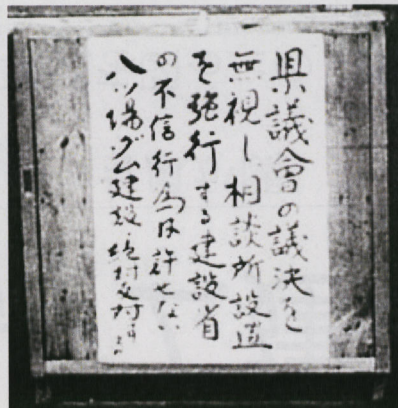 県議會の議決を
無視し相談所設置
を強行する建設省
の不信行為は許せない
八ッ場ダム建設絶対反対する